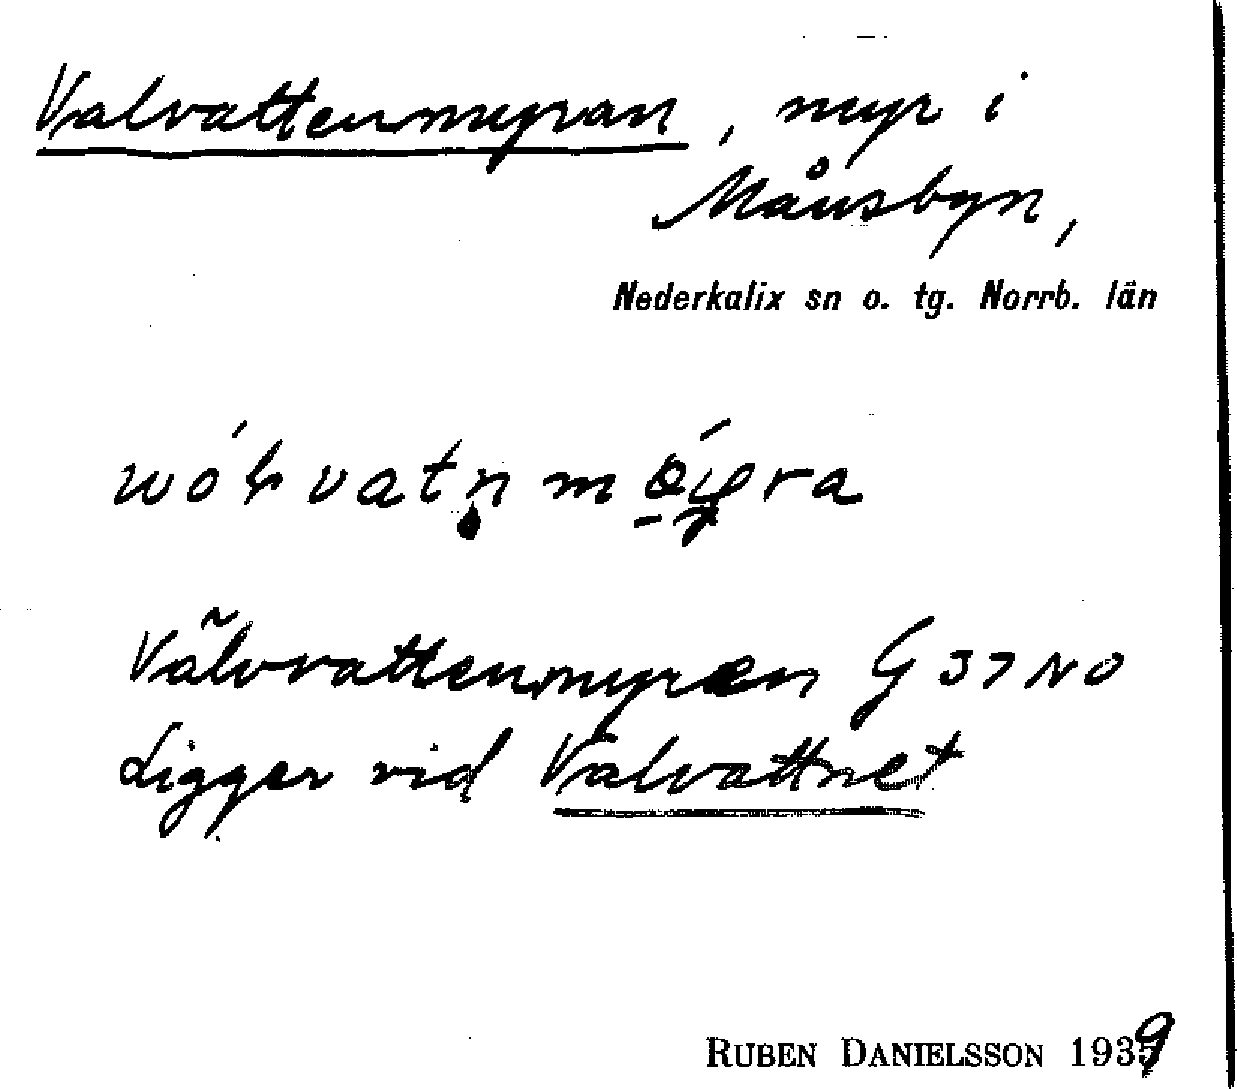 Valvattenmyran, myr i
Månsbyn,
Nederkalix sn o. tg. Norrb. län
Valvvattenmyran G 37 NO
Ligger vid Valvattnet
RUBEN DANIELSSON 1939